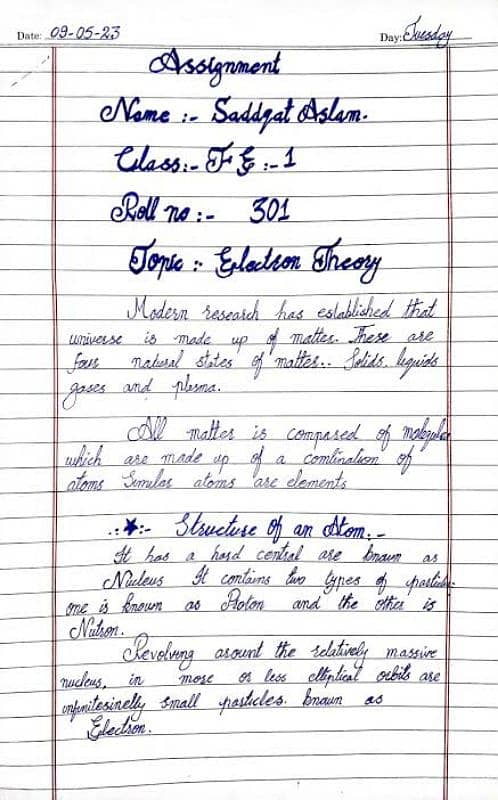 Date: 09-05-23 Day: Tuesday
Assignment
Name :- Saddqat Aslam.
Class:- F E :- 1
Roll no :- 301
Topic :- Electron Theory
Modern research has established that
universe is made up of matter. These are
four natural states of matter.. Solids, liquids
gases and plasma.
All matter is compased of molequles
which are made up of a comtination of
atoms Similar atoms are elements
.:★:- Structure of an Atom.-
It has a hard central are knawn as
Nucleus It contains two types of particles
one is known as Proton and the other is
Nutron.
Revolving around the relatively massive
nucleus, in more or less elliptical orbits are
infinitesinelly small particles. knawn as
Electron.